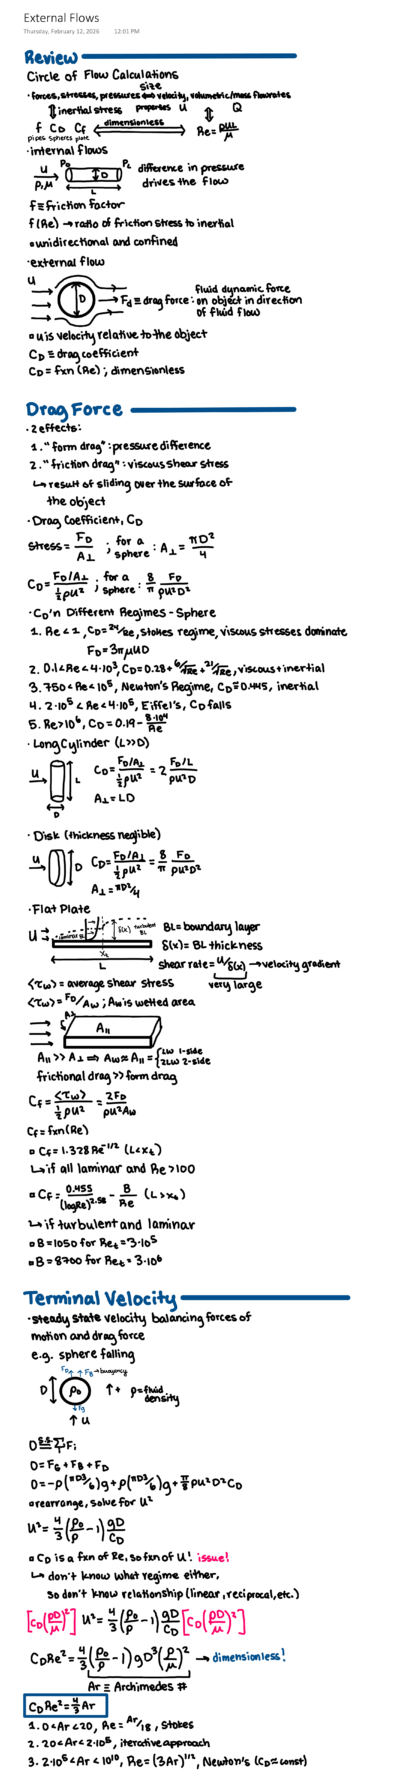 External Flows
Thursday, February 12, 2026 12:01 PM
Review
Circle of Flow Calculations
size
·forces, stresses, pressures ⟺ velocity, volumetric/mass flowrates
⇕ inertial stress properties u ⇕ Q
f C_D C_f ⟺ dimensionless Re = ρuL/μ
pipes spheres plate
·internal flows
u → P₀ D P_L difference in pressure
ρ,μ L drives the flow
f ≡ friction factor
f(Re) → ratio of friction stress to inertial
▫unidirectional and confined
·external flow
u D → F_d ≡ drag force: fluid dynamic force on object in direction of fluid flow
▫u is velocity relative to the object
C_D ≡ drag coefficient
C_D = fxn (Re) ; dimensionless
Drag Force
·2 effects:
1. "form drag" : pressure difference
2. "friction drag" : viscous shear stress
↳ result of sliding over the surface of
the object
·Drag Coefficient, C_D
stress = F_D/A⊥ ; for a sphere : A⊥ = πD²/4
C_D = (F_D/A⊥)/(½ρu²) ; for a sphere : 8/π F_D/(ρu²D²)
·C_D in Different Regimes - Sphere
1. Re < 1, C_D = 24/Re, Stokes regime, viscous stresses dominate
F_D = 3πμuD
2. 0.1 < Re < 4·10³, C_D = 0.28 + 6/√Re + 21/Re, viscous + inertial
3. 750 < Re < 10⁵, Newton's Regime, C_D ≅ 0.445, inertial
4. 2·10⁵ < Re < 4·10⁵, Eiffel's, C_D falls
5. Re > 10⁶, C_D = 0.19 - 8·10⁴/Re
·Long Cylinder (L>>D)
u → L C_D = (F_D/A⊥)/(½ρu²) = 2 (F_D/L)/(ρu²D)
D A⊥ = LD
·Disk (thickness neglible)
u → D C_D = (F_D/A⊥)/(½ρu²) = 8/π F_D/(ρu²D²)
A⊥ = πD²/4
·Flat Plate
u laminar BL δ(x) turbulent BL BL = boundary layer
x_t δ(x) = BL thickness
L shear rate = u/δ(x) → velocity gradient
⟨τw⟩ = average shear stress very large
⟨τw⟩ = F_D/A_w ; A_w is wetted area
A⊥
A||
A|| >> A⊥ ⟹ A_w ≈ A|| = { LW 1-side
2LW 2-side
frictional drag >> form drag
C_f = ⟨τw⟩/(½ρu²) = 2F_D/(ρu²A_w)
C_f = fxn(Re)
▫ C_f = 1.328 Re^(-1/2) (L<x_t)
↳ if all laminar and Re > 100
▫ C_f = 0.455/(logRe)^2.58 - B/Re (L>x_t)
↳ if turbulent and laminar
▫B = 1050 for Re_t = 3·10⁵
▫B = 8700 for Re_t = 3·10⁶
Terminal Velocity
·steady state velocity balancing forces of
motion and drag force
e.g. sphere falling
F_D F_B → buoyency
D ρ₀ ↑+ ρ = fluid density
F_g
↑ u
0 =^(ss) ΣF_i
0 = F_G + F_B + F_D
0 = -ρ(πD³/6)g + ρ(πD³/6)g + π/8 ρu²D²C_D
▫rearrange, solve for u²
u² = 4/3 (ρ₀/ρ - 1) gD/C_D
▫ C_D is a fxn of Re, so fxn of u! issue!
↳ don't know what regime either,
so don't know relationship (linear, reciprocal, etc.)
[C_D(ρD/μ)²] u² = 4/3 (ρ₀/ρ - 1) gD/C_D [C_D(ρD/μ)²]
C_D Re² = 4/3 (ρ₀/ρ - 1) gD³ (ρ/μ)² → dimensionless!
Ar ≡ Archimedes #
C_D Re² = 4/3 Ar
1. 0 < Ar < 20, Re = Ar/18, Stokes
2. 20 < Ar < 2·10⁵, iterative approach
3. 2·10⁵ < Ar < 10¹⁰, Re = (3Ar)^(1/2), Newton's (C_D ≈ const)